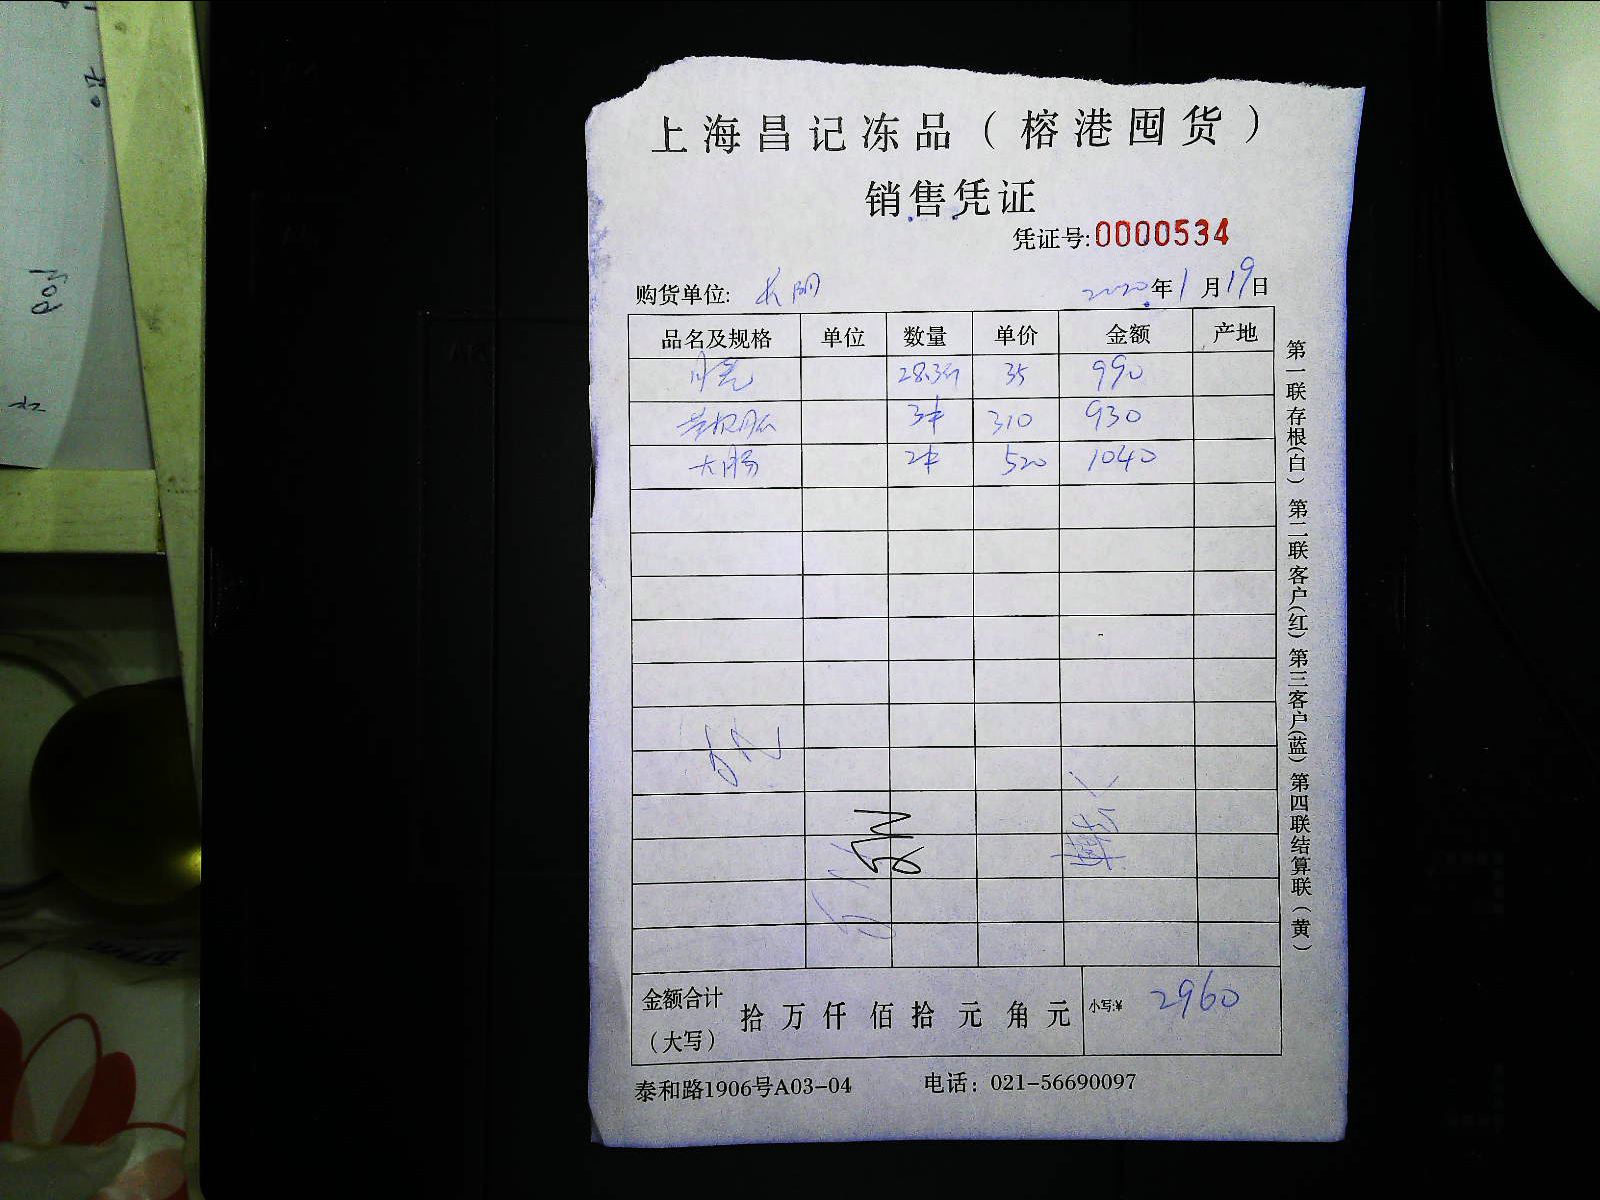 上海昌记冻品（榕港囤货）
销售凭证
凭证号:0000534
购货单位: 长明 2020年1月19日
品名及规格 单位 数量 单价 金额 产地
28.3斤 35 990
3件 310 930
大肠 2件 520 1040
金额合计（大写） 拾 万 仟 佰 拾 元 角 元 小写:¥ 2960
泰和路1906号A03-04 电话：021-56690097
第一联存根(白) 第二联客户(红) 第三客户(蓝) 第四联结算联（黄）